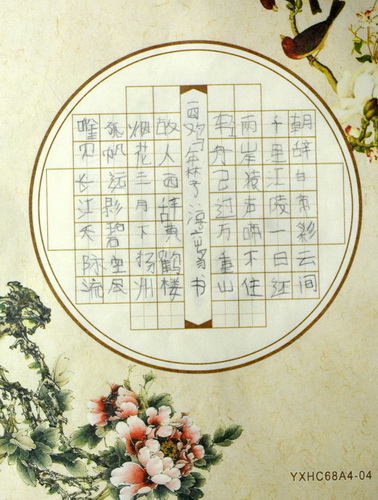 朝辞白帝彩云间
千里江陵一日还
两岸猿声啼不住
轻舟已过万重山
书
故人西辞黄鹤楼
烟花三月下扬州
孤帆远影碧空尽
唯见长江天际流
YXHC68A4-04